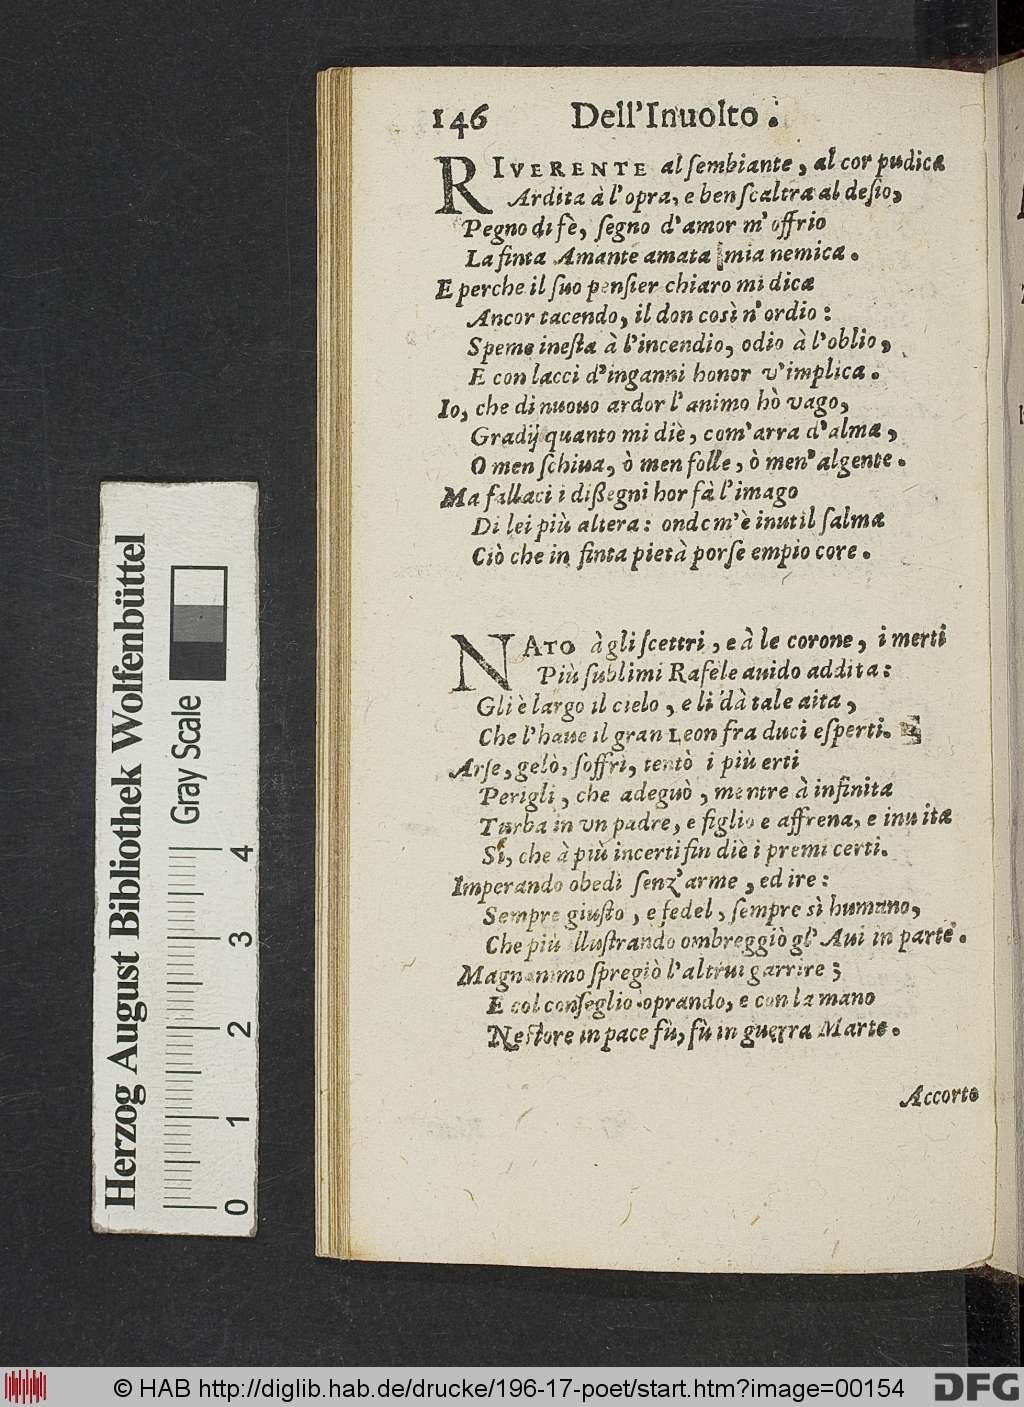 146 Dell'Inuolto.
RIVERENTE al ſembiante, al cor pudica
Ardita à l'opra, e ben ſcaltra al deſio,
Pegno di fè, ſegno d'amor m'offrio
La finta Amante amata mia nemica.
E perche il ſuo penſier chiaro mi dica
Ancor tacendo, il don così n'ordio:
Speme ineſta à l'incendio, odio à l'oblio,
E con lacci d'inganni honor v'implica.
Io, che di nuouo ardor l'animo hò vago,
Gradij quanto mi diè, com'arra d'alma,
O men ſchiua, ò men folle, ò men'algente.
Ma fallaci i diſſegni hor fà l'imago
Di lei più altera: ond'm'è inutil ſalma
Ciò che in finta pietà porſe empio core.
NATO à gli ſcettri, e à le corone, i merti
Più ſublimi Rafele auido addita:
Gli è largo il cielo, e li dà tale aita,
Che l'haue il gran Leon fra duci eſperti.
Arſe, gelò, ſoffrì, tentò i più erti
Perigli, che adeguò, mentre à infinita
Turba in vn padre, e figlio e affrena, e inuita
Sì, che à più incerti fin diè i premi certi.
Imperando obedì ſenz'arme, ed ire:
Sempre giuſto, e fedel, ſempre sì humano,
Che più illuſtrando ombreggiò gl' Aui in parte.
Magnanimo ſpregiò l'altrui garrire;
E col conſeglio oprando, e con la mano
Neſtore in pace fù, fù in guerra Marte.
Accorto
Herzog August Bibliothek Wolfenbüttel
Gray Scale
0 1 2 3 4
© HAB http://diglib.hab.de/drucke/196-17-poet/start.htm?image=00154
DFG